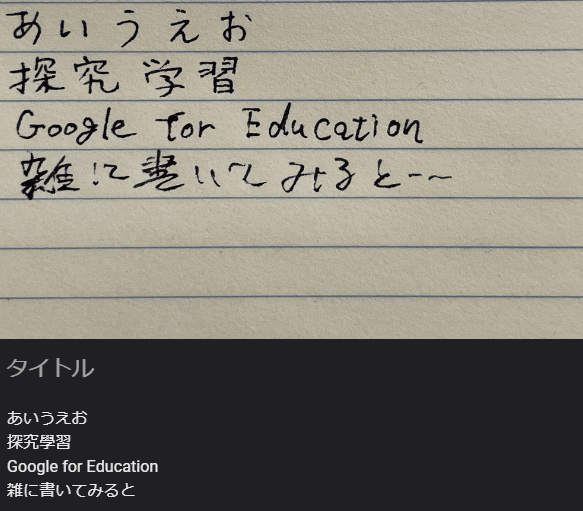 あいうえお
探究学習
Google for Education
雑に書いてみると--~
タイトル
あいうえお
探究學習
Google for Education
雑に書いてみると